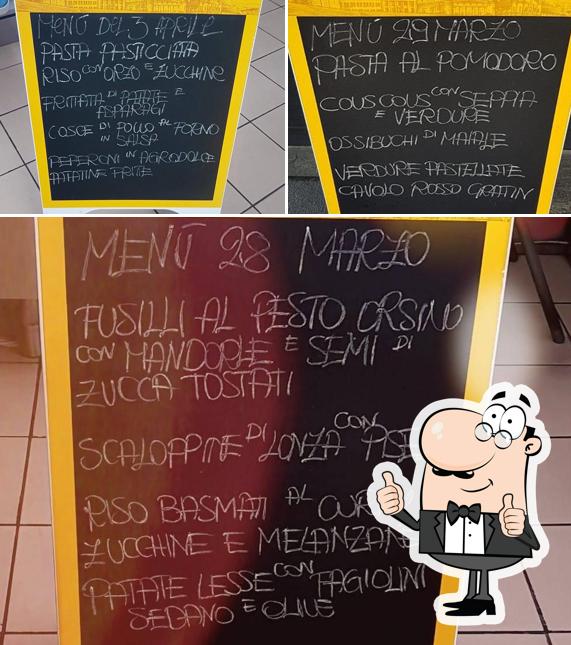 MENÚ DEL 3 APRILE
PASTA PASTICCIATA
RISO CON ORZO E ZUCCHINE
FRITTATA DI PATATE E
ASPARAGI
COSCE DI POLLO AL FORNO
IN SALSA
PEPERONI IN AGRODOLCE
PATATINE FRITTE
MENÚ 29 MARZO
PASTA AL POMODORO
COUS COUS CON SEPPIA
E VERDURE
OSSIBUCHI DI MAIALE
VERDURE PASTELLATE
CAVOLO ROSSO GRATIN
MENÚ 28 MARZO
FUSILLI AL PESTO ORSINO
CON MANDORLE E SEMI DI
ZUCCA TOSTATI
SCALOPPINE DI LONZA CON
RISO BASMATI AL
ZUCCHINE E MELANZANE
PATATE LESSE CON FAGIOLINI
SEDANO E OLIVE